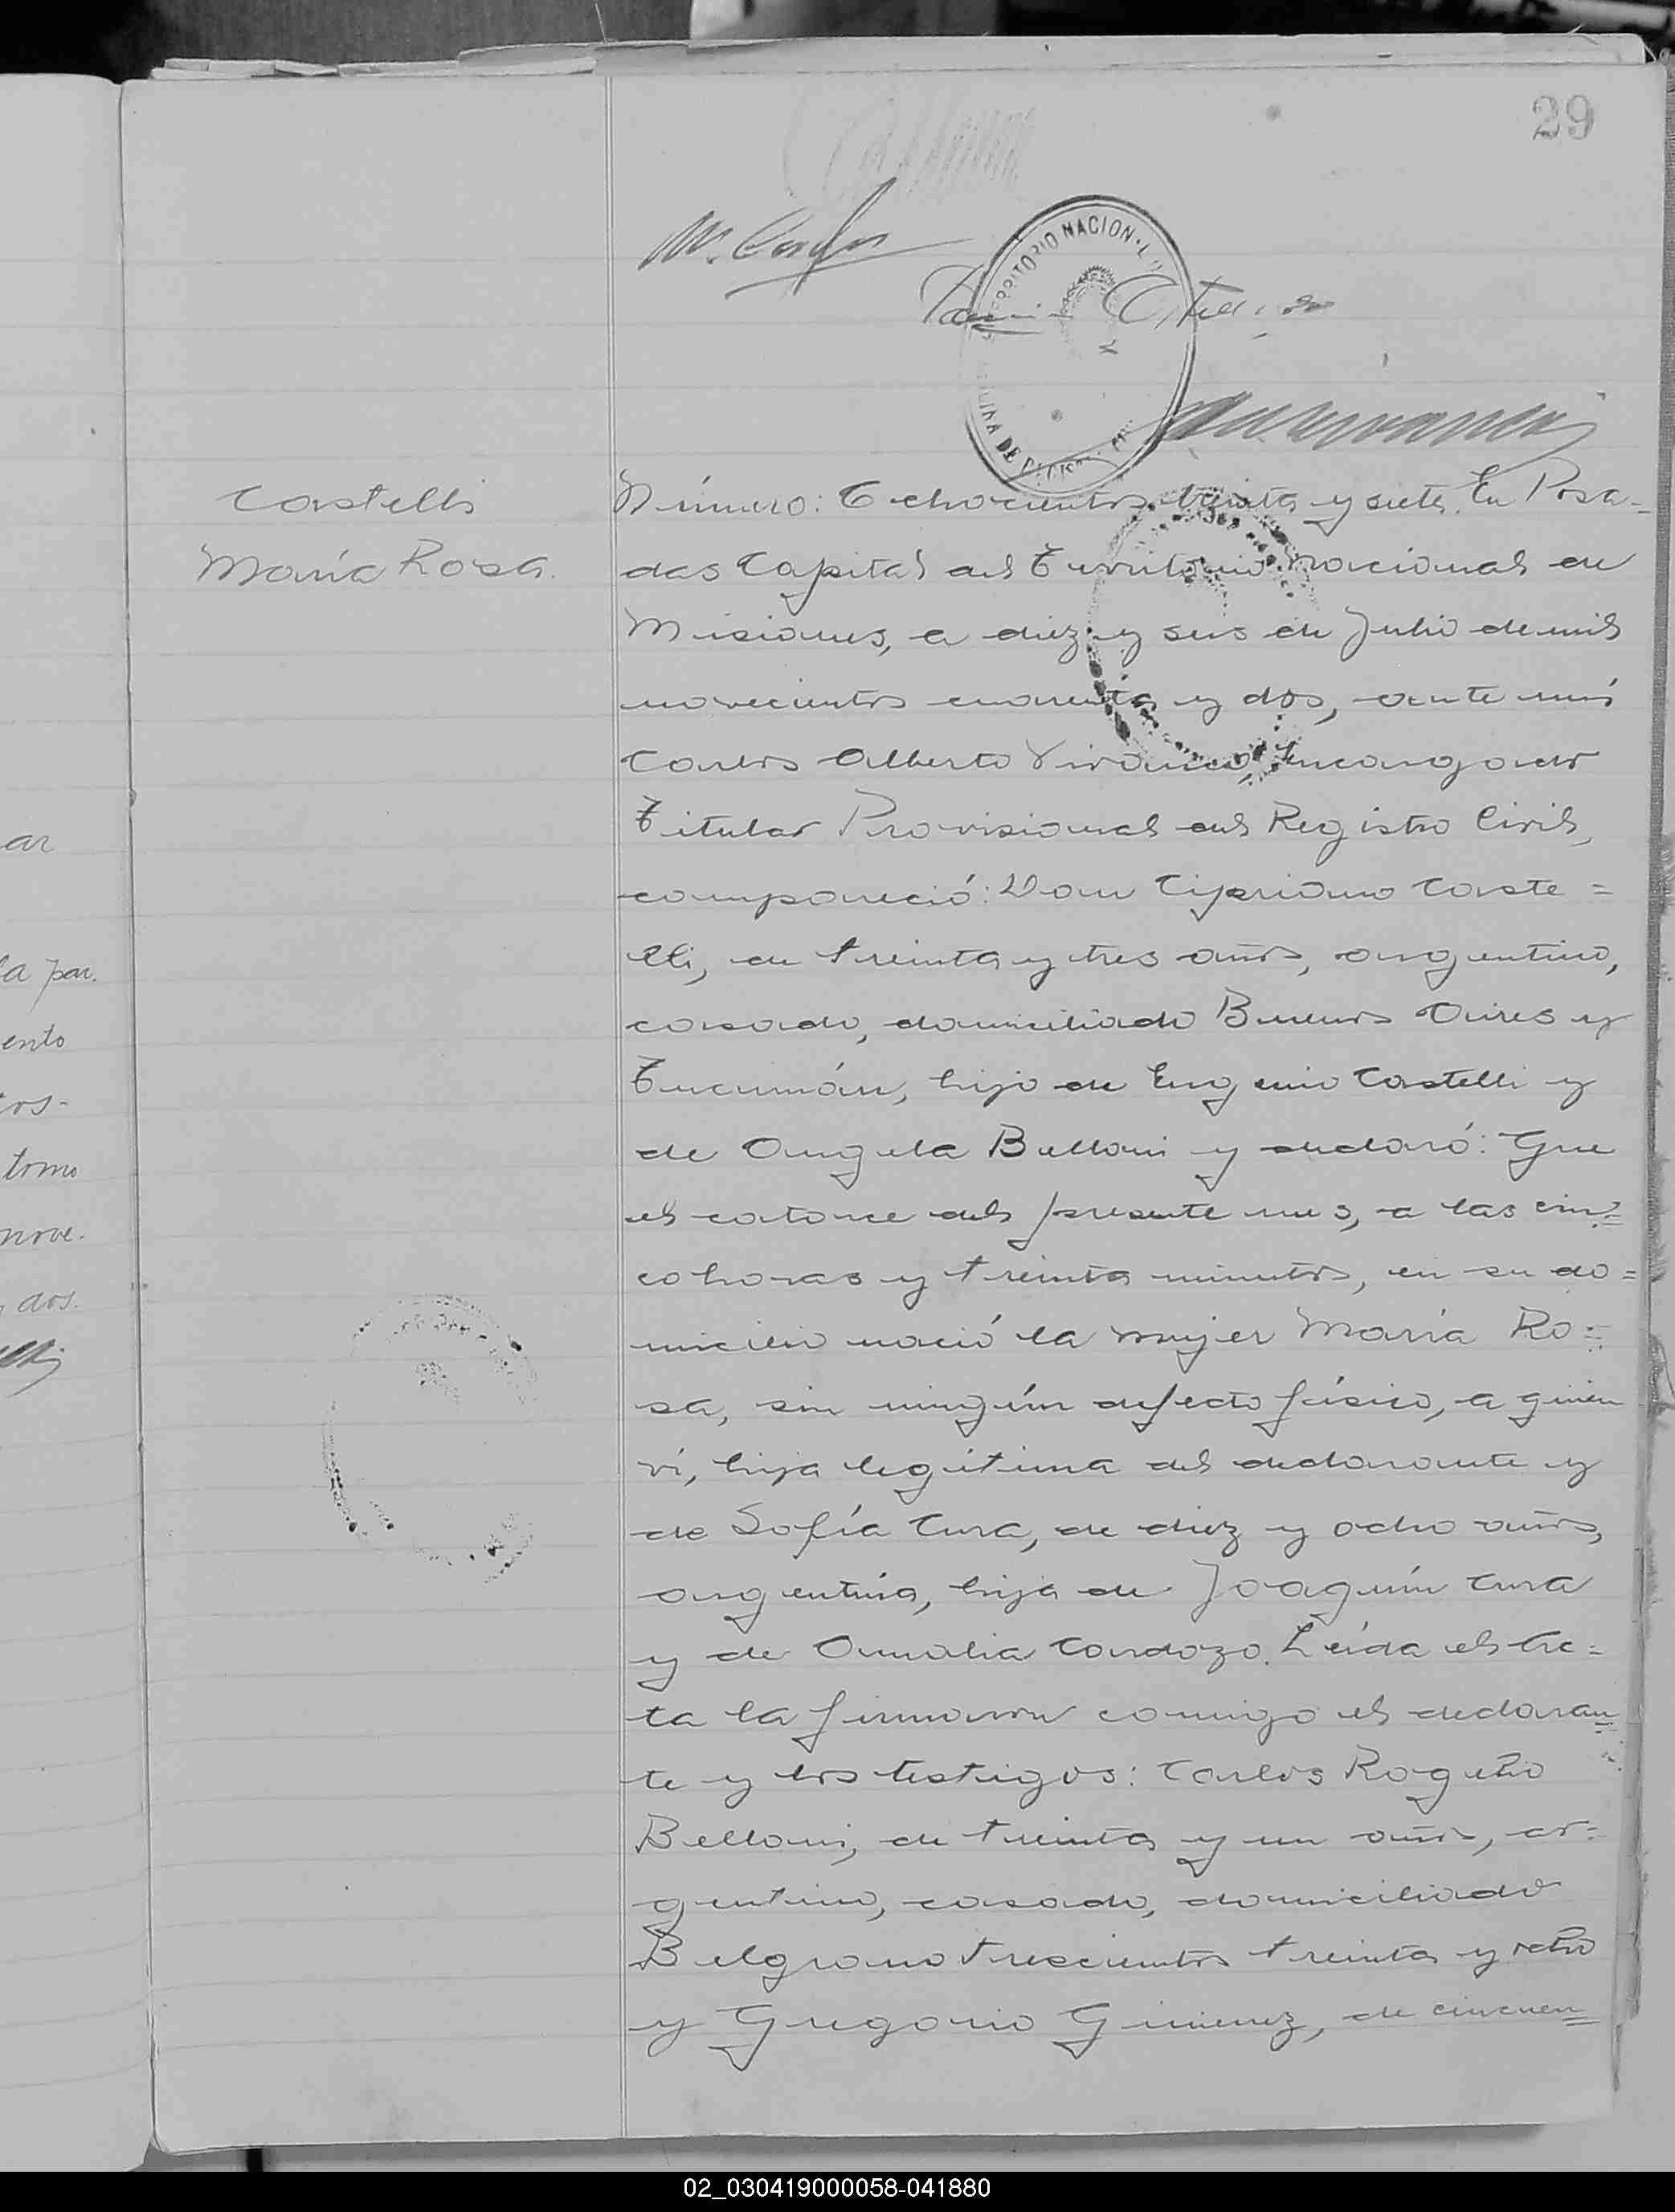 29
TERRITORIO NACIONAL
Castelli
María Rosa.
Número: Ochocientos treinta y siete. En Posa=
das Capital del Territorio Nacional de
Misiones, a diez y seis de Julio de mil
novecientos cuarenta y dos, ante mí
Carlos Alberto Vivanco, Encargado
Titular Provisional del Registro Civil,
compareció: Don Cipriano Caste=
lli, de treinta y tres años, argentino,
casado, domiciliado Buenos Aires y
Tucumán, hijo de Eugenio Castelli y
de Angela Belloni y declaró: Que
el catorce del presente mes, a las cin=
co horas y treinta minutos, en su do=
micilio nació la mujer María Ro=
sa, sin ningún defecto físico, a quien
ví, hija legítima del declarante y
de Sofía Cura, de diez y ocho años,
argentina, hija de Joaquín Cura
y de Amalia Cardozo. Leída el Ac=
ta la firmaron conmigo el declaran=
te y los testigos: Carlos Rogelio
Belloni, de treinta y un años, ar=
gentino, casado, domiciliado
Belgrano trescientos treinta y ocho
y Gregorio Gimenez, de cincuen=
ar
la par.
ento
tos-
tomo
nove.
dos.
02_030419000058-041880